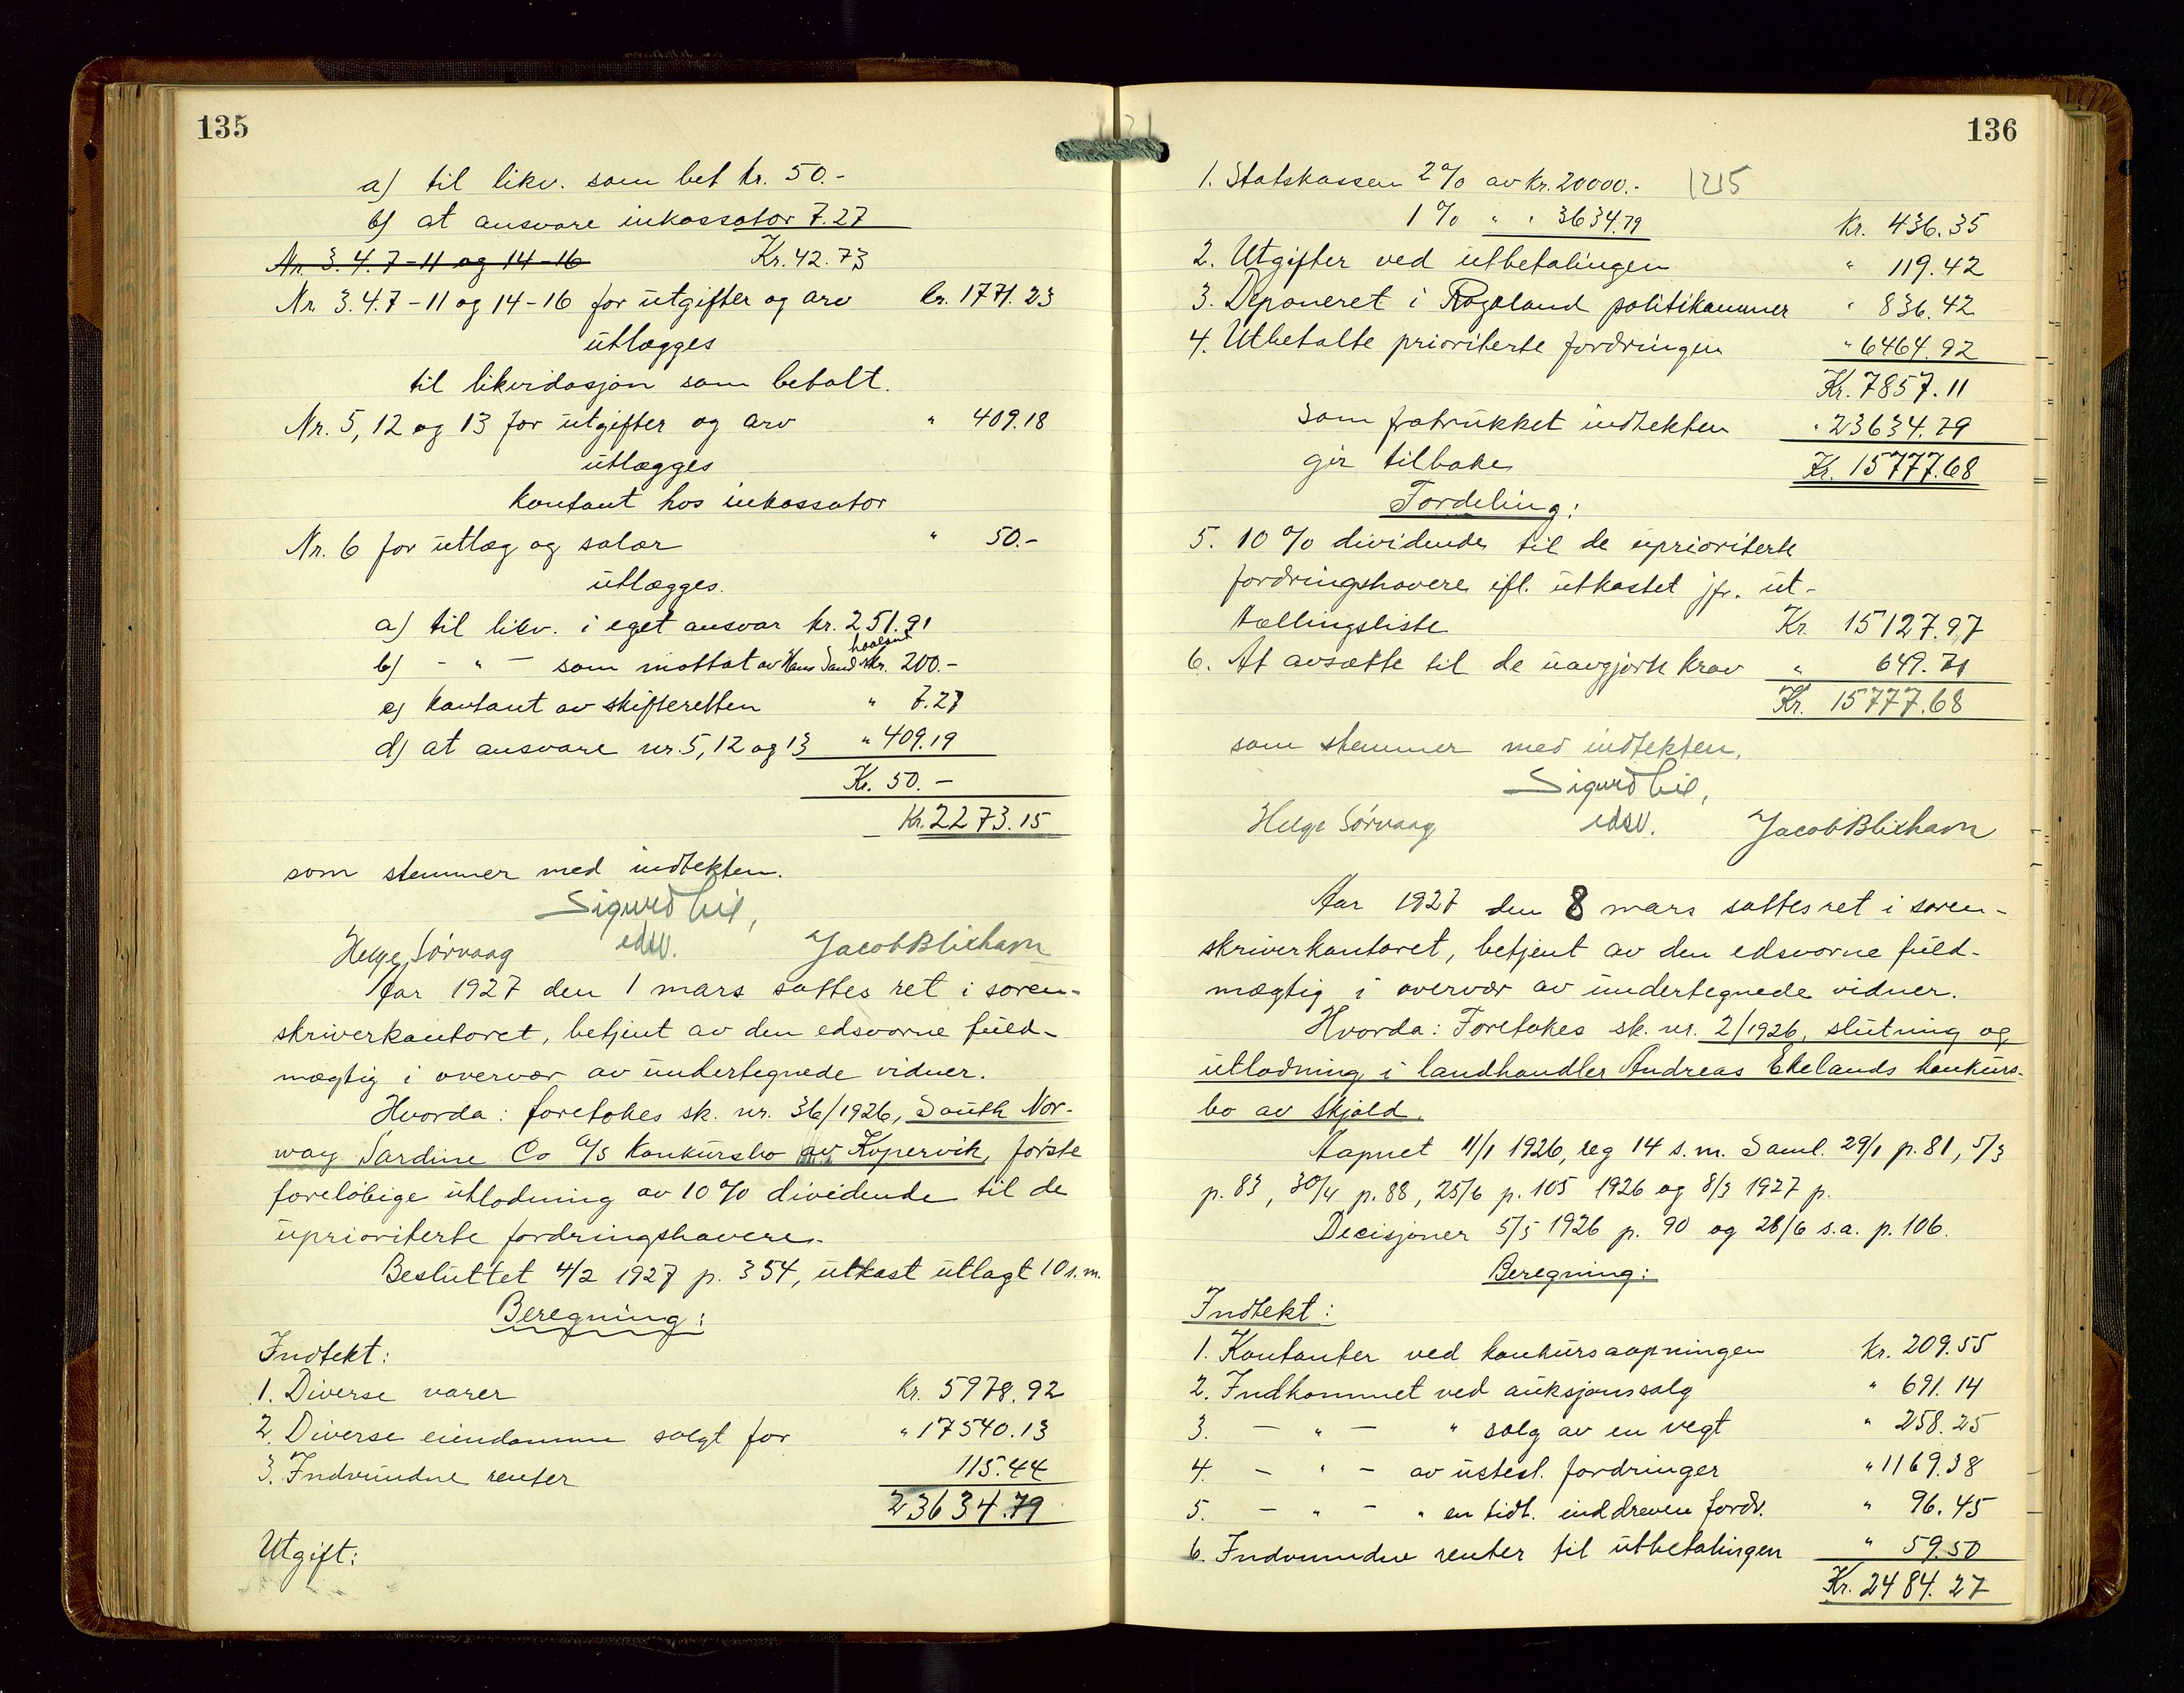 135
a) til likv. som bet kr. 50.-
b) at ansvare inkassator 7.27
Nr. 3. 4. 7-11 og 14-16 Kr. 42.73
Nr. 3. 4. 7-11 og 14-16 for utgifter og arv kr. 1771.23
utlægges
til likvidasjon som betalt.
Nr. 5, 12 og 13 for utgifter og arv " 409.18
utlægges
kontant hos inkassator
Nr. 6 for utlæg og salær " 50.-
utlægges.
a) til likv. i eget ansvar kr. 251.91
b) - " - som mottat av Hans Sands kr. 200.-
c) kontant av skifteretten " 7.27
d) at ansvare nr. 5, 12 og 13 " 409.19
Kr. 50.-
Kr. 2273.15
som stemmer med indtekten.
Sigurd
Helge Sørvaag edsv. Jacob Blixhavn
Aar 1927 den 1 mars sattes ret i soren-
skriverkontoret, betjent av den edsvorne fuld-
mægtig i overvær av undertegnede vidner.
Hvorda: foretokes sk. nr. 36/1926, South Nor-
way Sardine Co A/S konkursbo av Kopervik, første
foreløbige utlodning av 10% dividende til de
uprioriterte fordringshavere.
Besluttet 4/2 1927 p. 354, utkast utlagt 10 s.m.
Beregning:
Indtekt:
1. Diverse varer kr. 5978.92
2. Diverse eiendomme solgt for " 17540.13
3. Indvundne renter 115.44
23634.79
Utgift:
136
1. Statskassen 2% av kr. 20000.- 1215
1% " " 3634.79 kr. 436.35
2. Utgifter ved utbetalingen " 119.42
3. Deponeret i Rogaland politikammer " 836.42
4. Utbetalte prioriterte fordringer " 6464.92
Kr. 7857.11
som fratrukket indtekten " 23634.79
gir tilbake Kr. 15777.68
Fordeling:
5. 10% dividende til de uprioriterte
fordringshavere ifl. utkastet jfr. ut-
tællingsliste Kr. 15127.97
6. At avsætte til de uavgjorte krav " 649.71
Kr. 15777.68
som stemmer med indtekten.
Sigurd
Helge Sørvaag edsv. Jacob Blixhavn
Aar 1927 den 8 mars sattes ret i soren-
skriverkontoret, betjent av den edsvorne fuld-
mægtig i overvær av undertegnede vidner.
Hvorda: Foretokes sk. nr. 2/1926, slutning og
utlodning i landhandler Andreas Ekelands konkurs-
bo av Skjold.
Aapnet 11/1 1926, reg 14 s.m. Saml. 29/1 p. 81, 5/3
p. 83, 30/4 p. 88, 25/6 p. 105 1926 og 8/3 1927 p.
Decisjoner 5/5 1926 p. 90 og 28/6 s.a. p. 106.
Beregning:
Indtekt:
1. Kontanter ved konkursaapningen Kr. 209.55
2. Indkommet ved auksjonssalg " 691.14
3. - " - " salg av en vegt " 258.25
4. - " - av utest. fordringer " 1169.38
5. - " - " en tidl. inddreven fordr. " 96.45
6. Indvundne renter til utbetalingen " 59.50
Kr. 2484.27